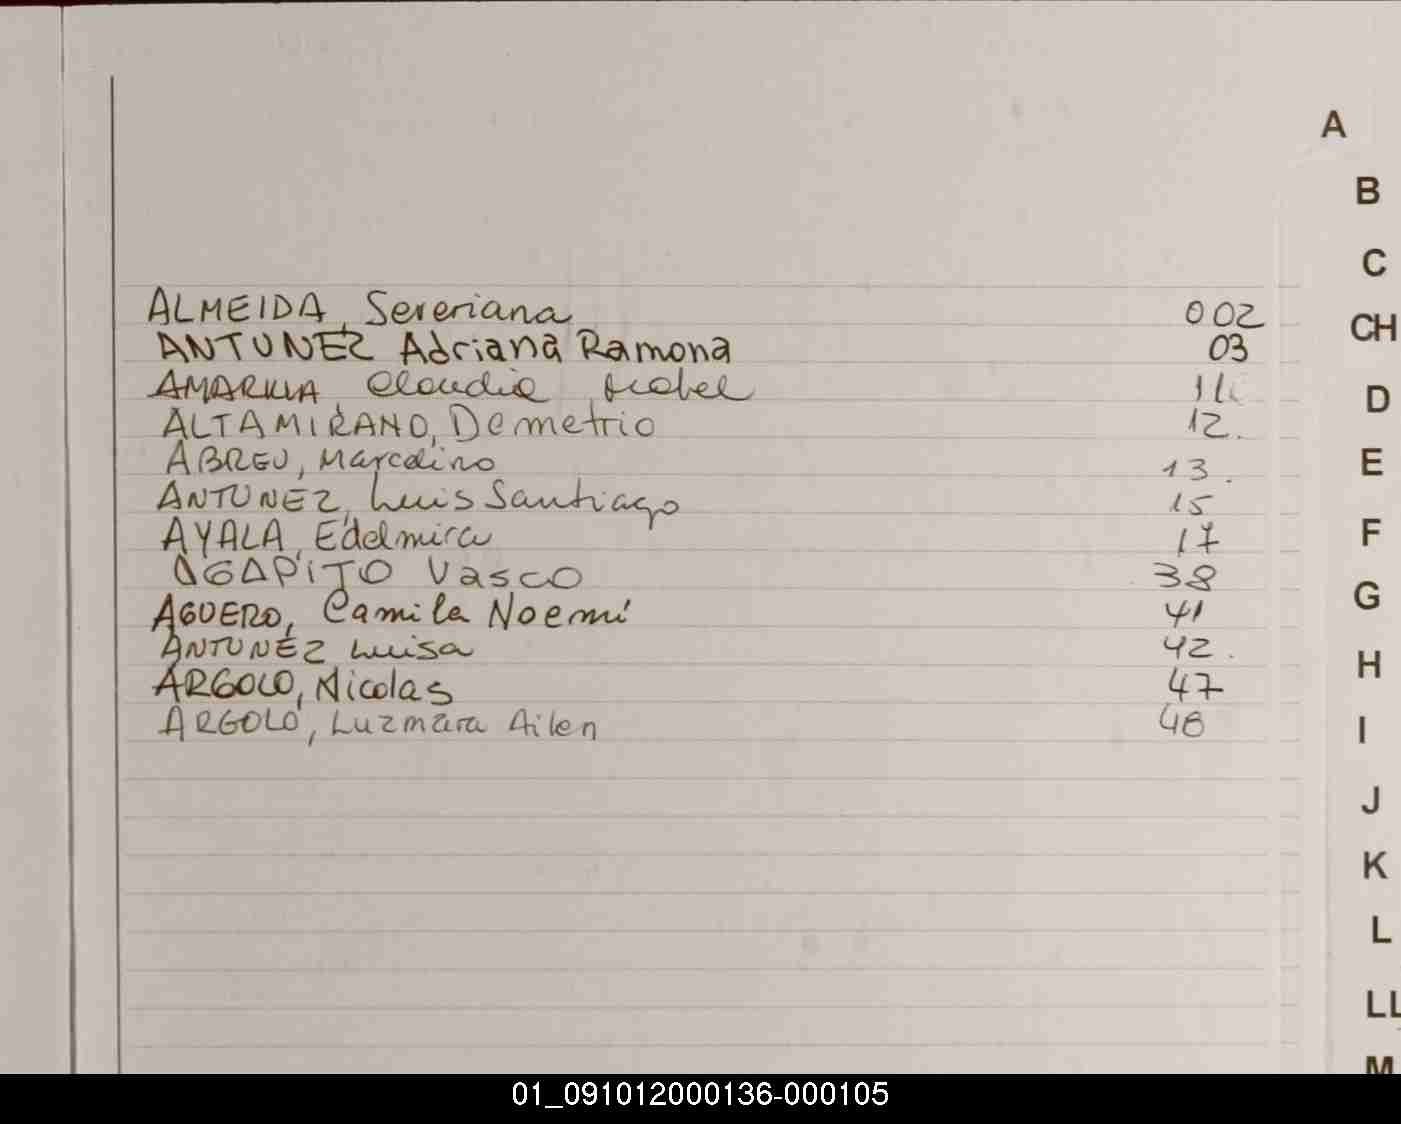 A
B
C
CH
D
E
F
G
H
I
J
K
L
LL
M
ALMEIDA, Severiana 002
ANTUNEZ Adriana Ramona 03
AMARILLA, Claudia Isabel 11.
ALTAMIRANO, Demetrio 12.
ABREU, Marcelino 13.
ANTUNEZ, Luis Santiago 15
AYALA, Edelmira 17
AGAPITO Vasco 38
AGUERO, Camila Noemí 41
ANTUNEZ Luisa 42.
ARGOLO, Nicolas 47
ARGOLO, Luzmara Ailen 48
01_091012000136-000105